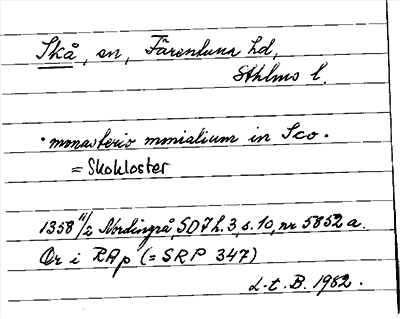 Skå, sn, Färentuna hd,
Sthlms l.
· monasterio monialium in Sco ·
= Skokloster
1358 11/2 Nordingrå, SD 7 h. 3, s. 10, nr 5852 a.
Or i RAp (= SRP 347)
L. t. B. 1982.